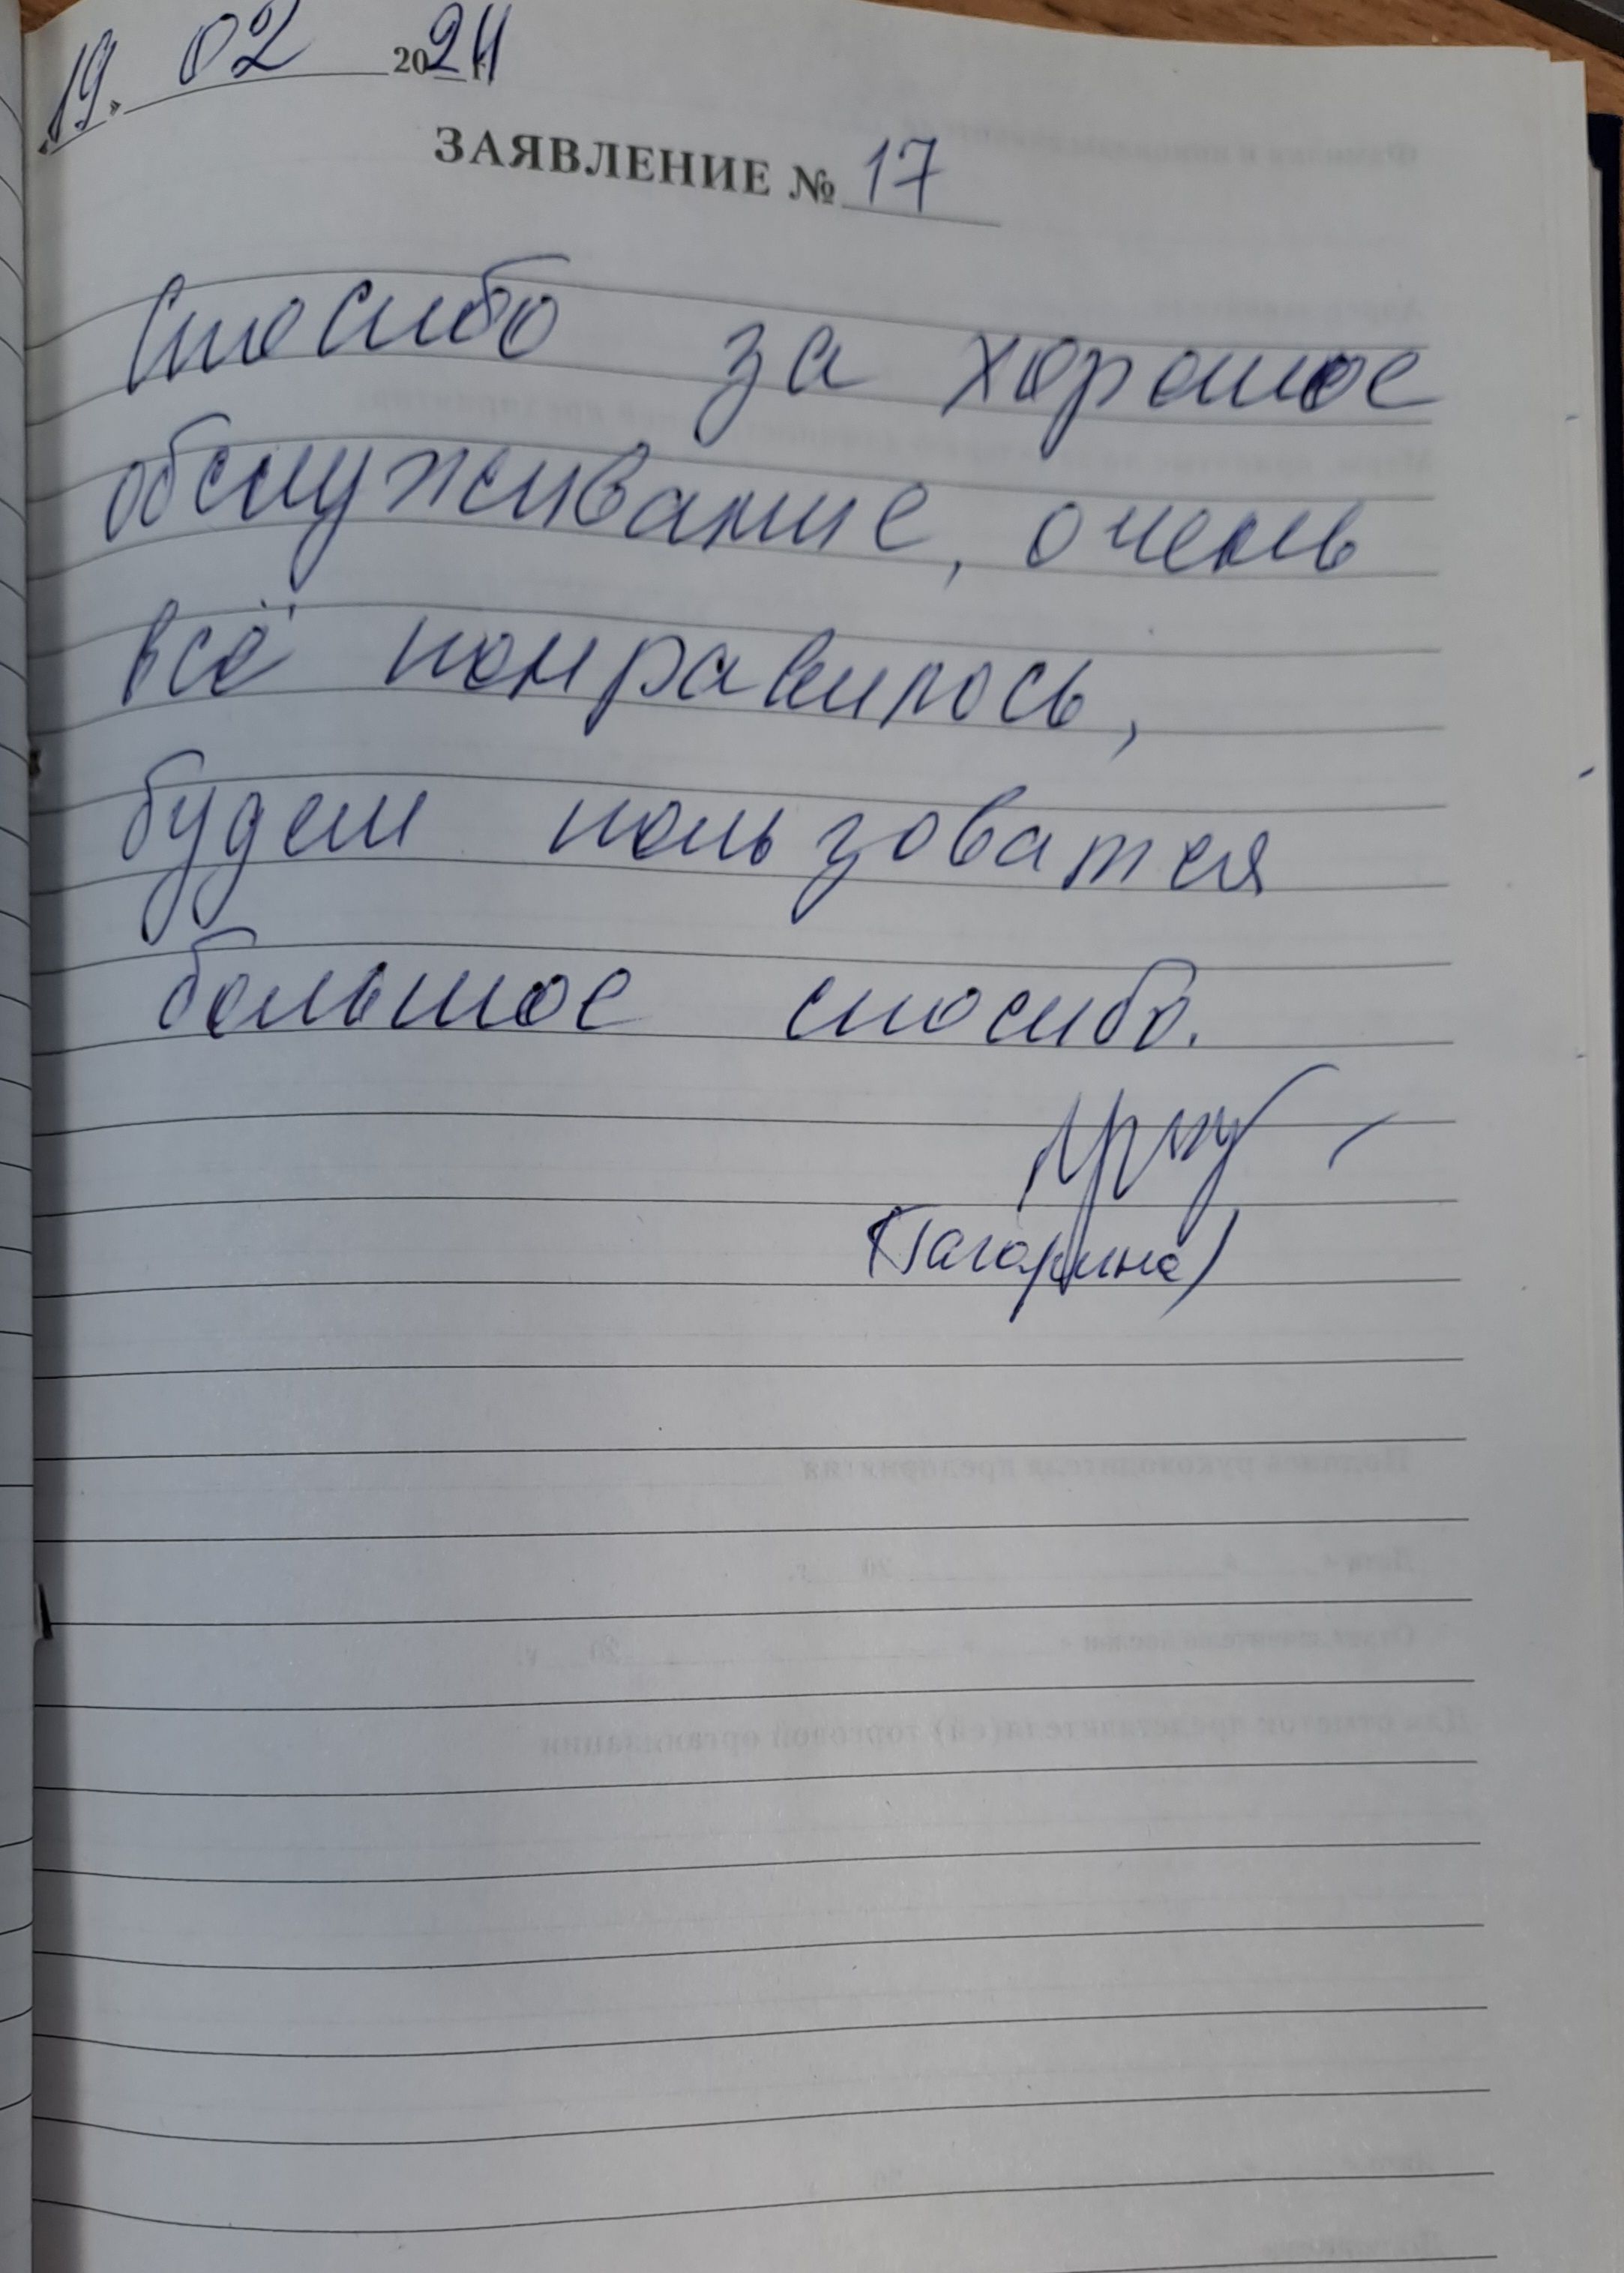 «19.» 02 2024 г.
ЗАЯВЛЕНИЕ № 17
Спосибо за хорошое
обслуживание, очень
всё понравилось,
будем пользоватся
большое спосибо.
(Гагарина)